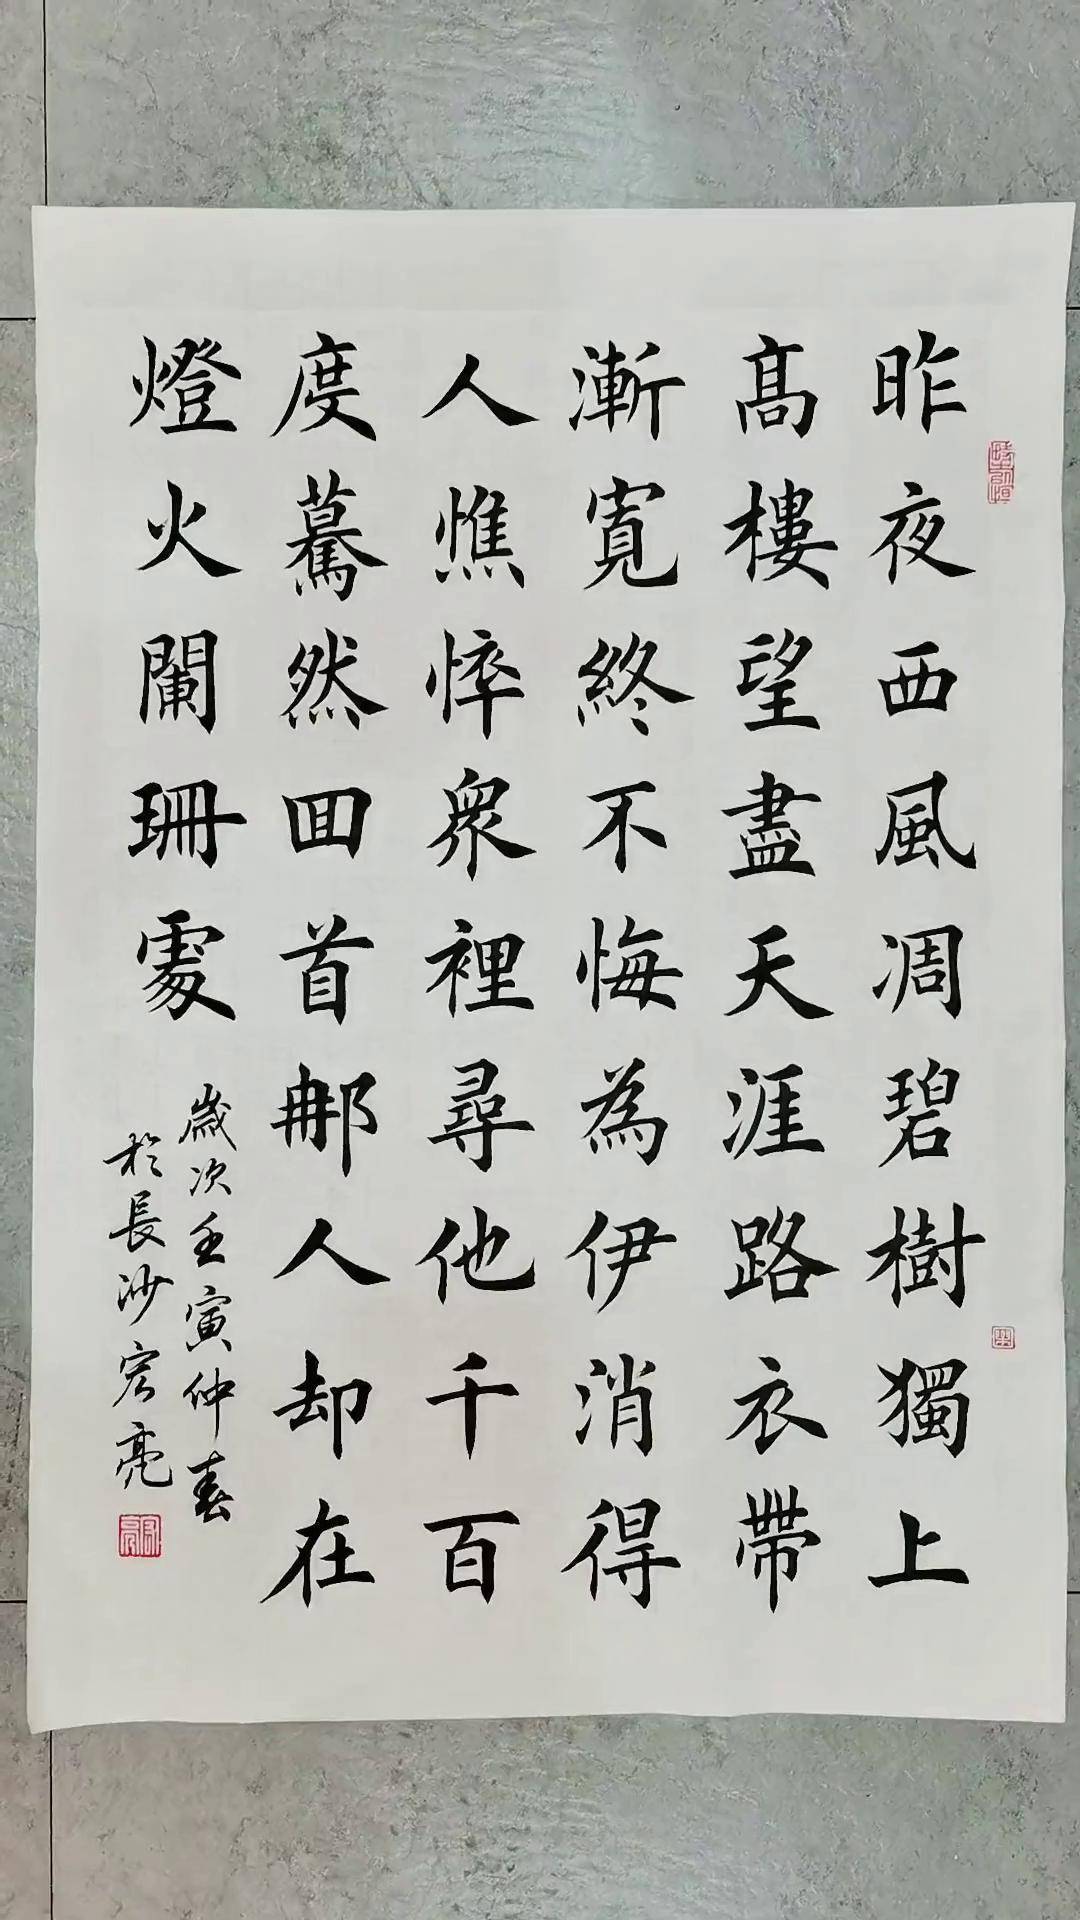 昨夜西風凋碧樹獨上
髙樓望盡天涯路衣帶
漸寬終不悔為伊消得
人憔悴衆裡尋他千百
度驀然囬首那人却在
燈火闌珊處
歲次壬寅仲春
於長沙宏亮